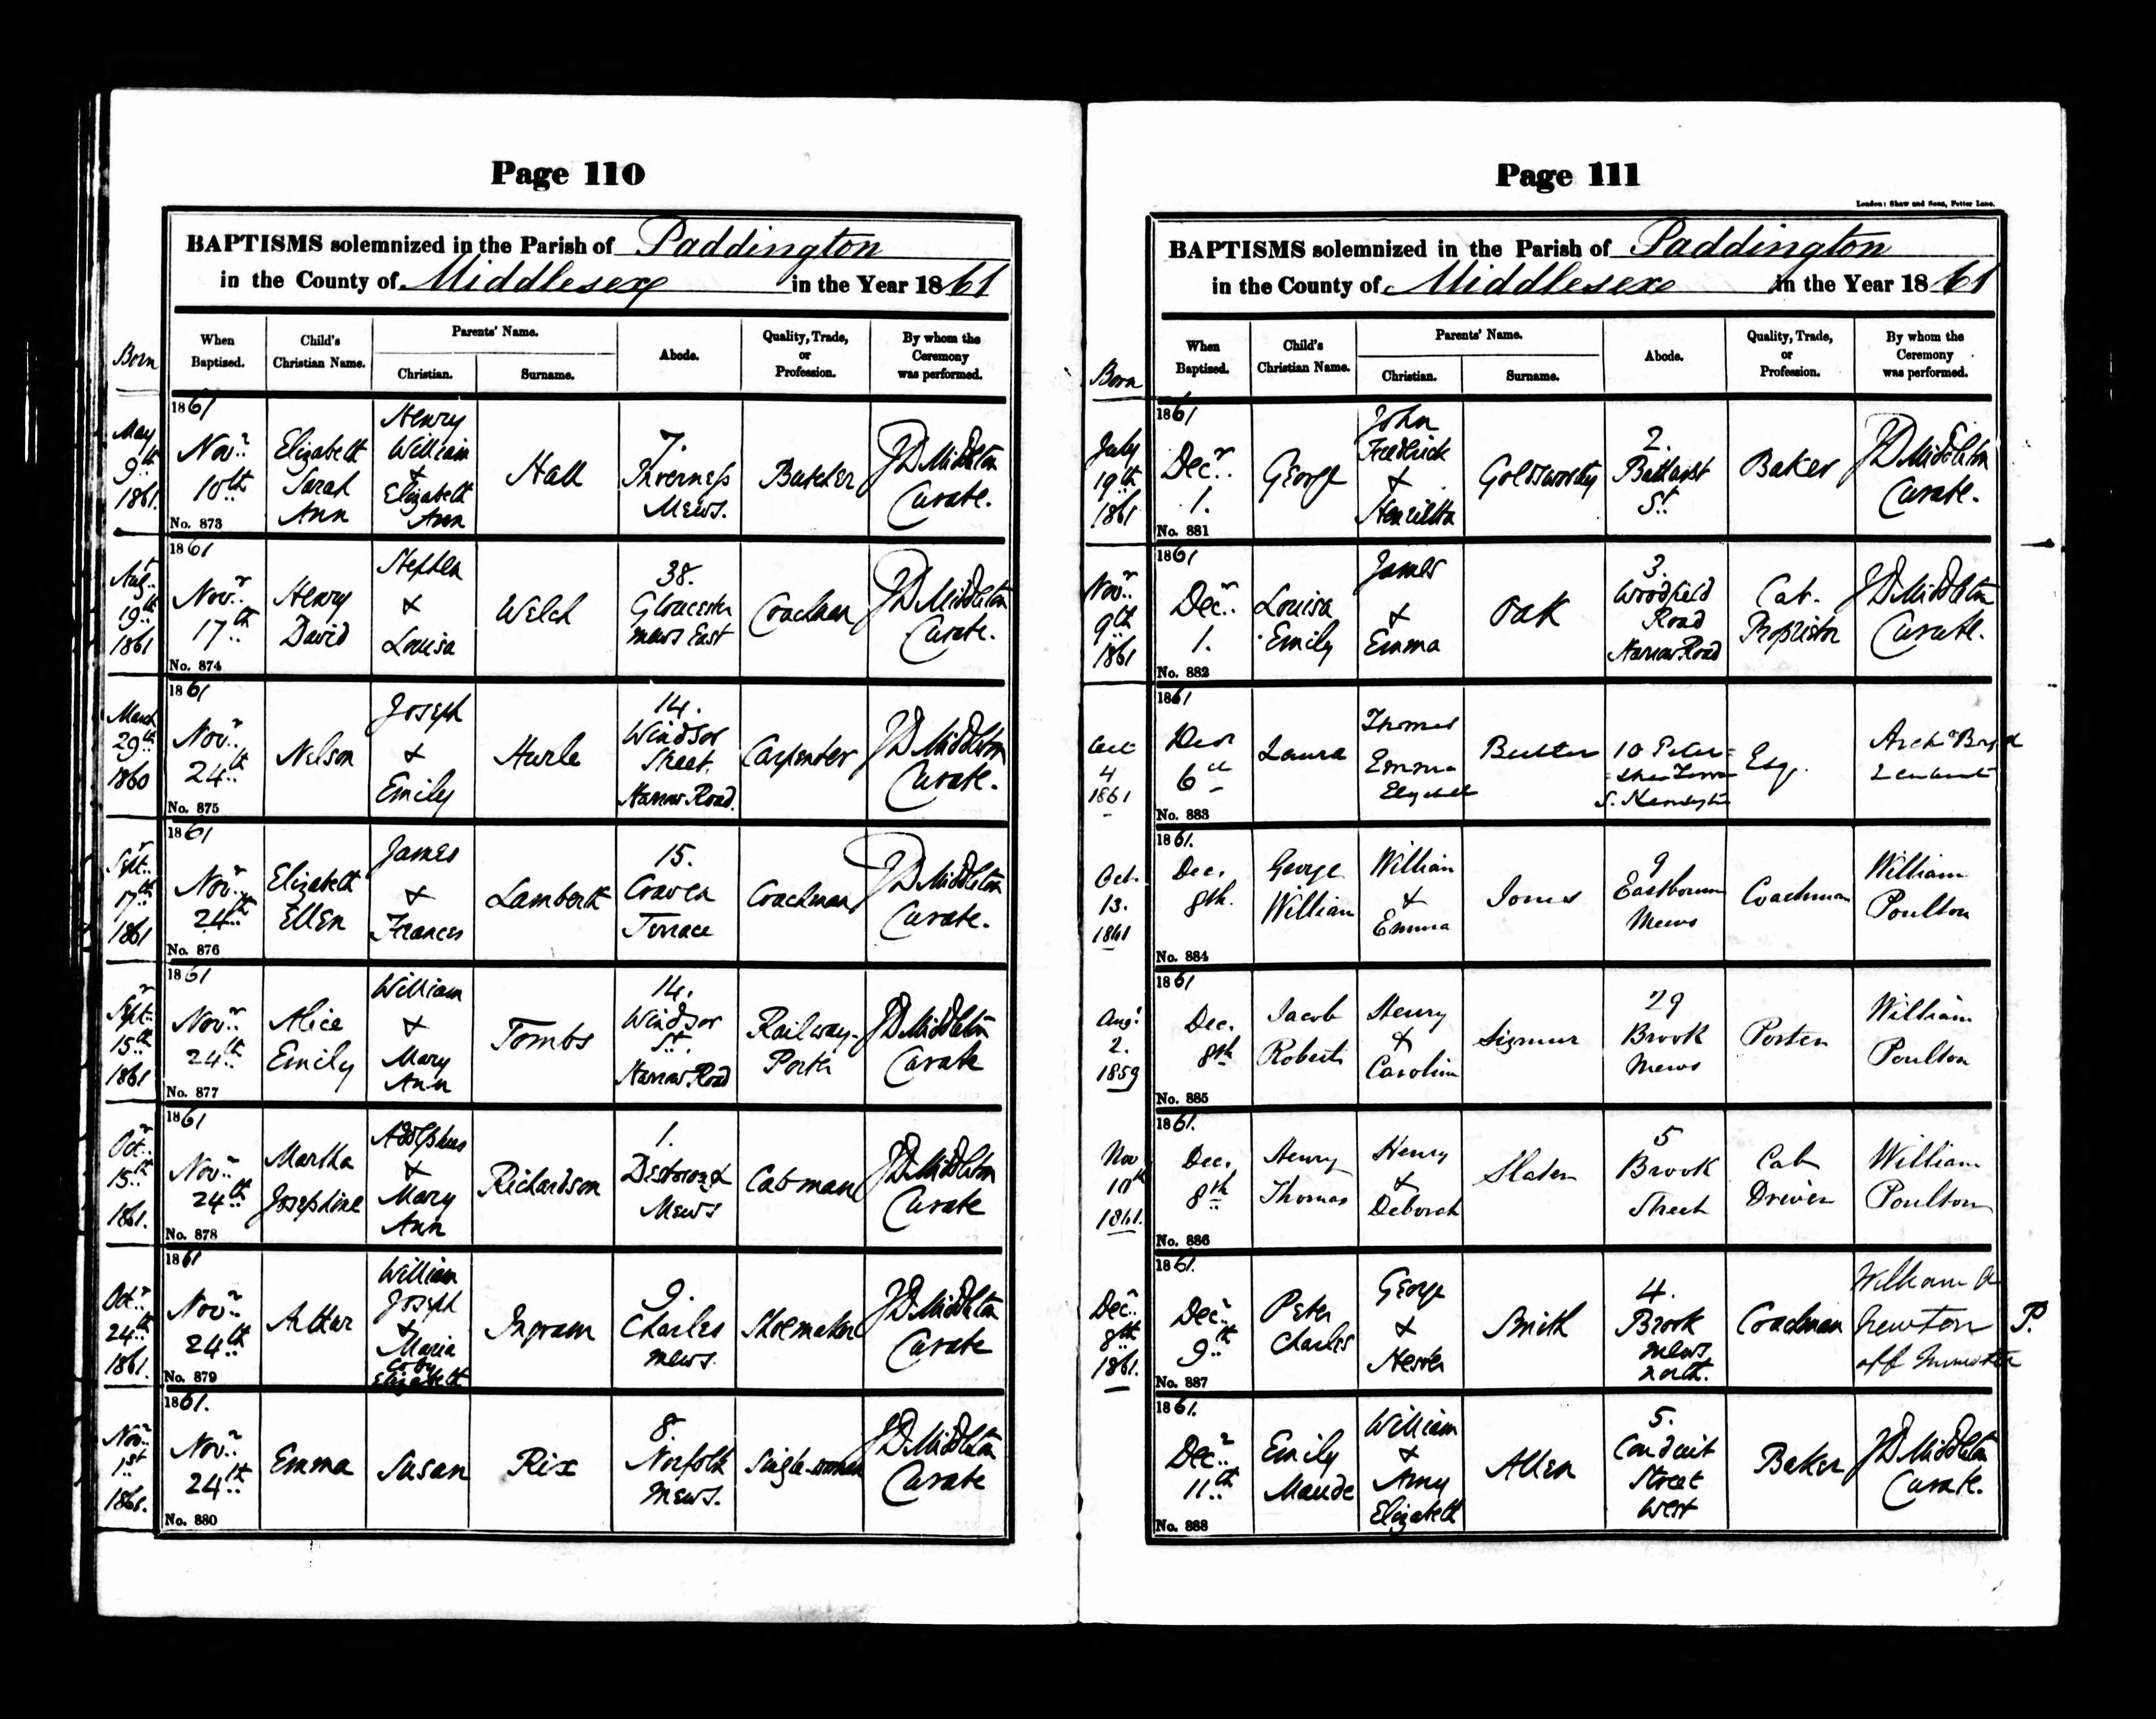 Page 110
BAPTISMS solemnized in the Parish of Paddington
in the County of Middlesex in the Year 1861
Born
When Baptised.
Child's Christian Name.
Parents' Name.
Christian.
Surname.
Abode.
Quality, Trade, or Profession.
By whom the Ceremony was performed.
May 9th 1861.
1861 Novr 10th No. 873
Elizabeth Sarah Ann
Henry William & Elizabeth Ann
Hall
7. Inverness Mews.
Butcher
JD Middleton Curate.
Augt 19th 1861
1861 Novr 17th No. 874
Henry David
Stephen & Louisa
Welch
38. Gloucester Mews East
Coachman
JD Middleton Curate.
March 29th 1860
1861 Novr 24th No. 875
Nelson
Joseph & Emily
Hurle
14. Windsor Street. Harrow Road.
Carpenter
JD Middleton Curate.
Septr 17th 1861
1861 Novr 24th No. 876
Elizabeth Ellen
James & Frances
Lamberth
15. Craven Terrace
Coachman
JD Middleton Curate.
Septr 15th 1861
1861 Novr 24th No. 877
Alice Emily
William & Mary Ann
Tombs
14. Windsor St. Harrow Road
Railway-Porter
JD Middleton Curate
Octr 15th 1861.
1861 Novr 24th No. 878
Martha Josephine
Adolphus & Mary Ann
Richardson
1. Mews
Cabman
JD Middleton Curate
Octr 24th 1861.
1861 Novr 24th No. 879
Arthur
William Joseph & Maria Elizabeth
Ingram
9. Charles Mews.
Shoemaker
JD Middleton Curate
Novr 1st 1861.
1861. Novr 24th No. 880
Emma
Susan
Rix
8. Norfolk Mews.
Single-woman
JD Middleton Curate
Page 111
London: Shaw and Sons, Fetter Lane.
BAPTISMS solemnized in the Parish of Paddington
in the County of Middlesex in the Year 1861
Born
When Baptised.
Child's Christian Name.
Parents' Name.
Christian.
Surname.
Abode.
Quality, Trade, or Profession.
By whom the Ceremony was performed.
July 19th 1861
1861 Decr 1. No. 881
George
John Frederick & Henrietta
Goldsworthy
2. Bathurst St.
Baker
JD Middleton Curate.
Novr 9th 1861
1861 Decr 1. No. 882
Louisa Emily
James & Emma
Oak
3. Woodfield Road Harrow Road
Cab-Proprietor
JD Middleton Curate.
Oct 4 1861
1861 Decr 6th No. 883
Laura
Thomas Emma Elizabeth
10 S. Kensington
Esq.
Oct. 13. 1861
1861. Dec. 8th. No. 884
George William
William & Emma
Jones
9 Eastbourn Mews
Coachman
William Poulton
Augt 2. 1859
1861 Dec. 8th No. 885
Jacob Robert
Henry & Caroline
29 Brook Mews
Porter
William Poulton
Nov 10th 1861.
1861. Dec. 8th No. 886
Henry Thomas
Henry & Deborah
Slater
5 Brook Street
Cab Driver
William Poulton
Decr 8th 1861.
1861. Decr 9th No. 887
Peter Charles
George & Hester
Smith
4. Brook Mews North.
Coachman
William A Newton off Minister
P.
1861. Decr 11th No. 888
Emily Maude
William & Amy Elizabeth
Allen
5. Conduit Street West
Baker
JD Middleton Curate.